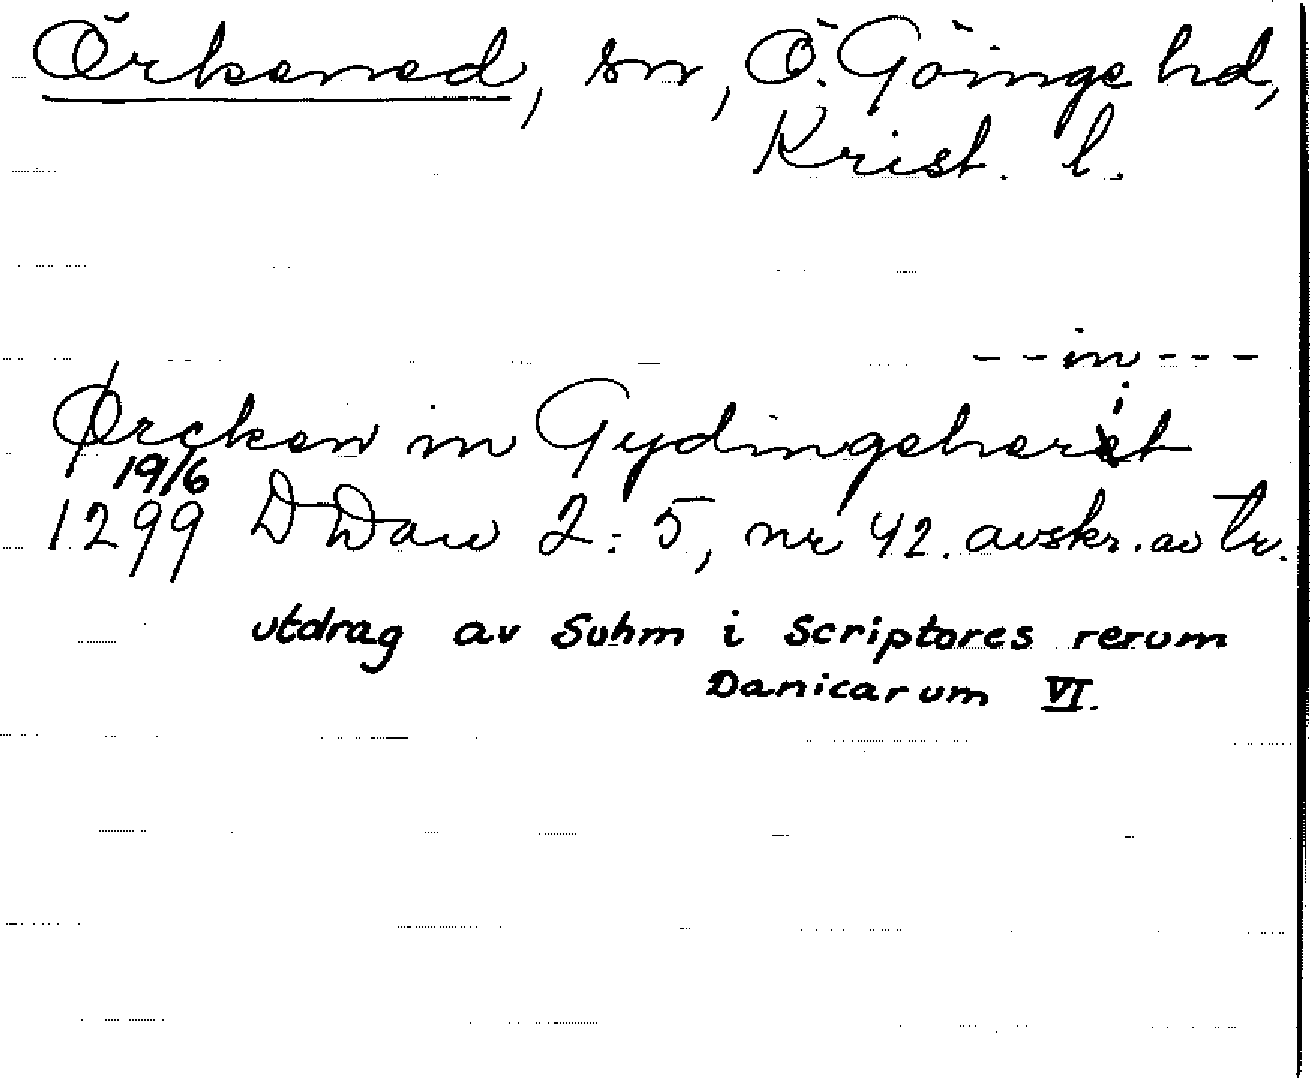 Örkened, sn, Ö. Göinge hd,
Krist. l.
- - in - - -
Ørcken in Gydingeherit
19/6
1299 DDan 2:5, nr 42. avskr. av tr.
utdrag av Suhm i Scriptores rerum
Danicarum VI.